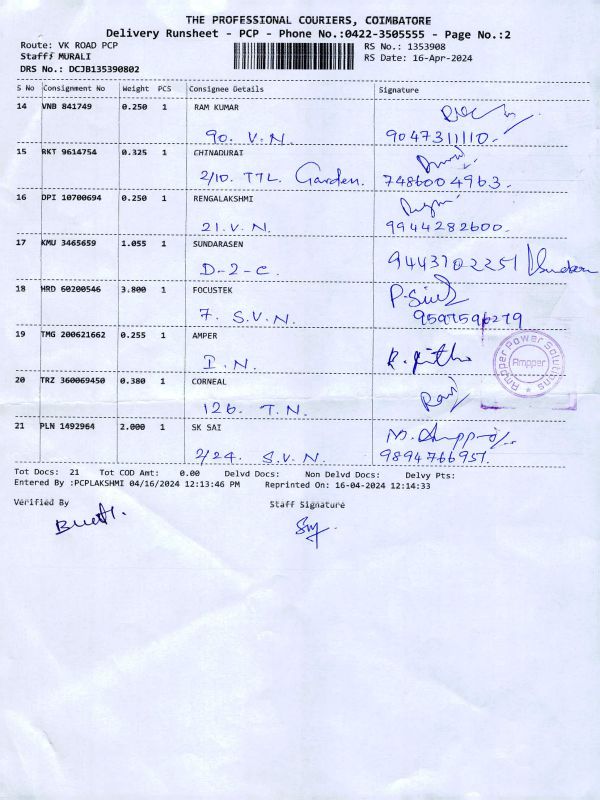 THE PROFESSIONAL COURIERS, COIMBATORE
Delivery Runsheet - PCP - Phone No.:0422-3505555 - Page No.:2
Route: VK ROAD PCP RS No.: 1353908
Staff: MURALI RS Date: 16-Apr-2024
DRS No.: DCJB135390802
S No Consignment No Weight PCS Consignee Details Signature
14 VNB 841749 0.250 1 RAM KUMAR
90. V.N. 9047311110.
15 RKT 9614754 0.325 1 CHINADURAI
2/10. TTL. Garden. 7486004963.
16 DPI 10700694 0.250 1 RENGALAKSHMI
21. V.N. 9944282600.
17 KMU 3465659 1.055 1 SUNDARASEN
D-2-C. 9443702251
18 HRD 60200546 3.800 1 FOCUSTEK
7. S.V.N. 9597596279
19 TMG 200621662 0.255 1 AMPER
I.N.
Ampper Power Solutions
Ampper
20 TRZ 360069450 0.380 1 CORNEAL
126. T.N.
21 PLN 1492964 2.000 1 SK SAI
2/24. S.V.N. 9894766951.
Tot Docs: 21 Tot COD Amt: 0.00 Delvd Docs: Non Delvd Docs: Delvy Pts:
Entered By :PCPLAKSHMI 04/16/2024 12:13:46 PM Reprinted On: 16-04-2024 12:14:33
Verified By Staff Signature